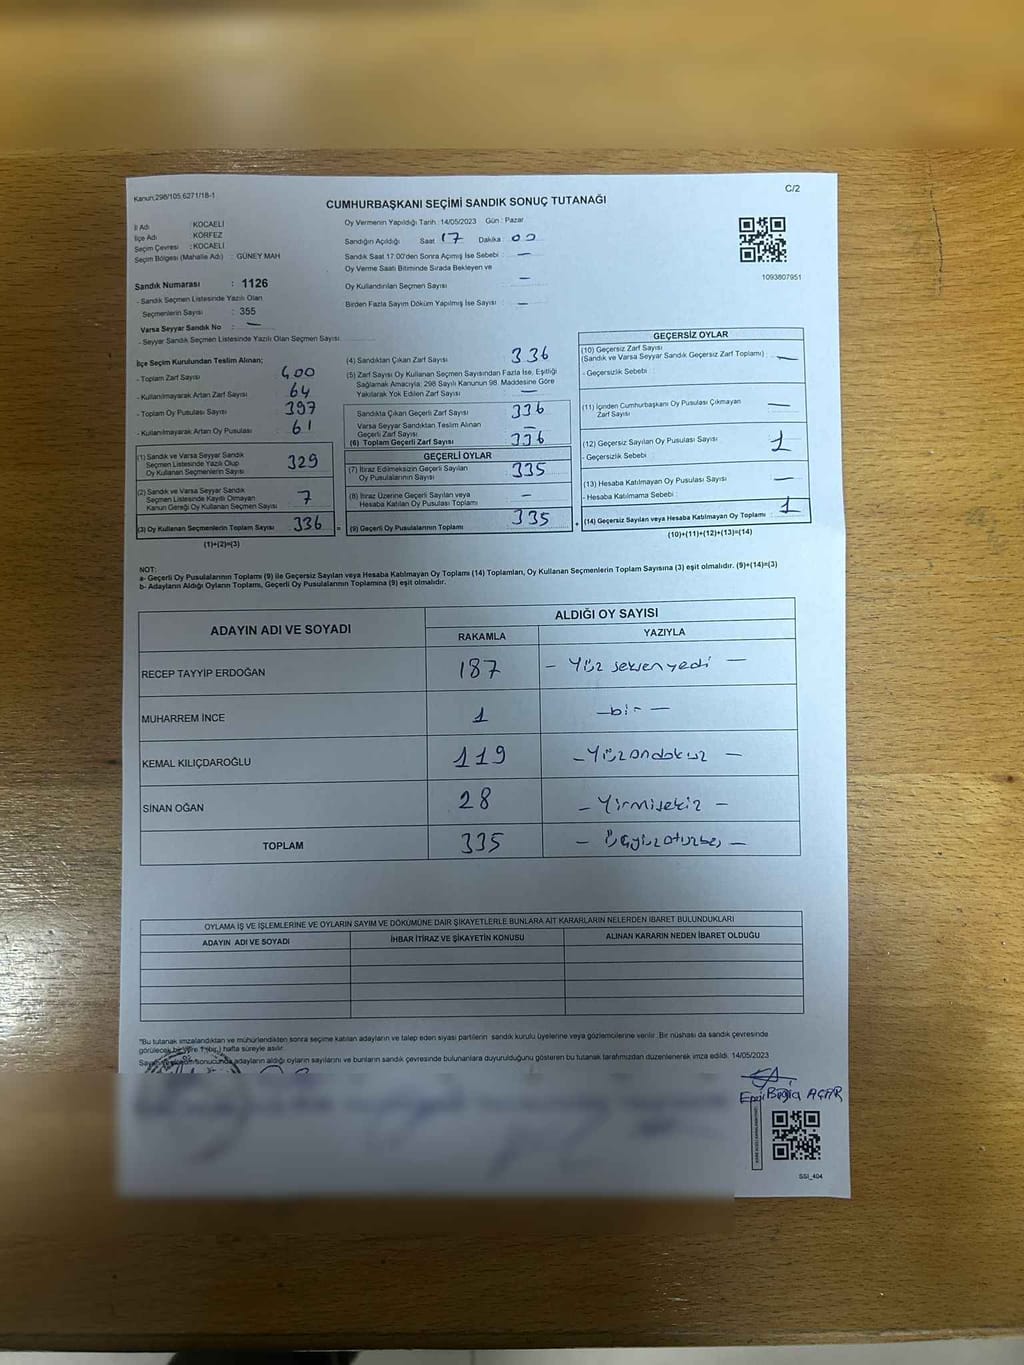 Kanun:298/105,6271/18-1
C/2
CUMHURBAŞKANI SEÇİMİ SANDIK SONUÇ TUTANAĞI
İl Adı : KOCAELİ
İlçe Adı : KÖRFEZ
Seçim Çevresi : KOCAELİ
Seçim Bölgesi (Mahalle Adı) : GÜNEY MAH
Sandık Numarası : 1126
- Sandık Seçmen Listesinde Yazılı Olan
Seçmenlerin Sayısı : 355
Varsa Seyyar Sandık No : —
- Seyyar Sandık Seçmen Listesinde Yazılı Olan Seçmen Sayısı
Oy Vermenin Yapıldığı Tarih : 14/05/2023 Gün : Pazar
Sandığın Açıldığı Saat : 17 Dakika : 00
Sandık Saat 17:00'den Sonra Açımış İse Sebebi : —
Oy Verme Saati Bitiminde Sırada Bekleyen ve
Oy Kullandırılan Seçmen Sayısı : —
Birden Fazla Sayım Döküm Yapılmış İse Sayısı : —
1093807951
İlçe Seçim Kurulundan Teslim Alınan;
- Toplam Zarf Sayısı : 400
- Kullanılmayarak Artan Zarf Sayısı : 64
- Toplam Oy Pusulası Sayısı : 397
- Kullanılmayarak Artan Oy Pusulası : 61
(1) Sandık ve Varsa Seyyar Sandık
Seçmen Listesinde Yazılı Olup
Oy Kullanan Seçmenlerin Sayısı 329
(2) Sandık ve Varsa Seyyar Sandık
Seçmen Listesinde Kayıtlı Olmayan
Kanun Gereği Oy Kullanan Seçmen Sayısı 7
(3) Oy Kullanan Seçmenlerin Toplam Sayısı 336 =
(1)+(2)=(3)
(4) Sandıktan Çıkan Zarf Sayısı : 336
(5) Zarf Sayısı Oy Kullanan Seçmen Sayısından Fazla İse, Eşitliği
Sağlamak Amacıyla; 298 Sayılı Kanunun 98. Maddesine Göre
Yakılarak Yok Edilen Zarf Sayısı : —
Sandıkta Çıkan Geçerli Zarf Sayısı : 336
Varsa Seyyar Sandıktan Teslim Alınan
Geçerli Zarf Sayısı : —
(6) Toplam Geçerli Zarf Sayısı : 336
GEÇERLİ OYLAR
(7) İtiraz Edilmeksizin Geçerli Sayılan
Oy Pusulalarının Sayısı : 335
(8) İtiraz Üzerine Geçerli Sayılan veya
Hesaba Katılan Oy Pusulası Toplamı : —
(9) Geçerli Oy Pusulalarının Toplamı : 335 +
GEÇERSİZ OYLAR
(10) Geçersiz Zarf Sayısı
(Sandık ve Varsa Seyyar Sandık Geçersiz Zarf Toplamı) : —
- Geçersizlik Sebebi :
(11) İçinden Cumhurbaşkanı Oy Pusulası Çıkmayan
Zarf Sayısı : —
(12) Geçersiz Sayılan Oy Pusulası Sayısı : 1
- Geçersizlik Sebebi :
(13) Hesaba Katılmayan Oy Pusulası Sayısı : —
- Hesaba Katılmama Sebebi :
(14) Geçersiz Sayılan veya Hesaba Katılmayan Oy Toplamı : 1
(10)+(11)+(12)+(13)=(14)
NOT:
a- Geçerli Oy Pusulalarının Toplamı (9) ile Geçersiz Sayılan veya Hesaba Katılmayan Oy Toplamı (14) Toplamları, Oy Kullanan Seçmenlerin Toplam Sayısına (3) eşit olmalıdır. (9)+(14)=(3)
b- Adayların Aldığı Oyların Toplamı, Geçerli Oy Pusulalarının Toplamına (9) eşit olmalıdır.
ADAYIN ADI VE SOYADI
ALDIĞI OY SAYISI
RAKAMLA YAZIYLA
RECEP TAYYİP ERDOĞAN 187 — Yüz seksen yedi —
MUHARREM İNCE 1 — bir —
KEMAL KILIÇDAROĞLU 119 — Yüzondokuz —
SİNAN OĞAN 28 — Yirmisekiz —
TOPLAM 335 — Üçyüzotuzbeş —
OYLAMA İŞ VE İŞLEMLERİNE VE OYLARIN SAYIM VE DÖKÜMÜNE DAİR ŞİKAYETLERLE BUNLARA AİT KARARLARIN NELERDEN İBARET BULUNDUKLARI
ADAYIN ADI VE SOYADI İHBAR İTİRAZ VE ŞİKAYETİN KONUSU ALINAN KARARIN NEDEN İBARET OLDUĞU
"Bu tutanak imzalandıktan ve mühürlendikten sonra seçime katılan adayların ve talep eden siyasi partilerin sandık kurulu üyelerine veya gözlemcilerine verilir. Bir nüshası da sandık çevresinde
görülecek bir yere 1 (bir) hafta süreyle asılır.
sonucunda adayların aldığı oyların sayılarını ve bunların sandık çevresinde bulunanlara duyurulduğunu gösteren bu tutanak tarafımızdan düzenlenerek imza edildi. 14/05/2023
AÇAR
SSI_404